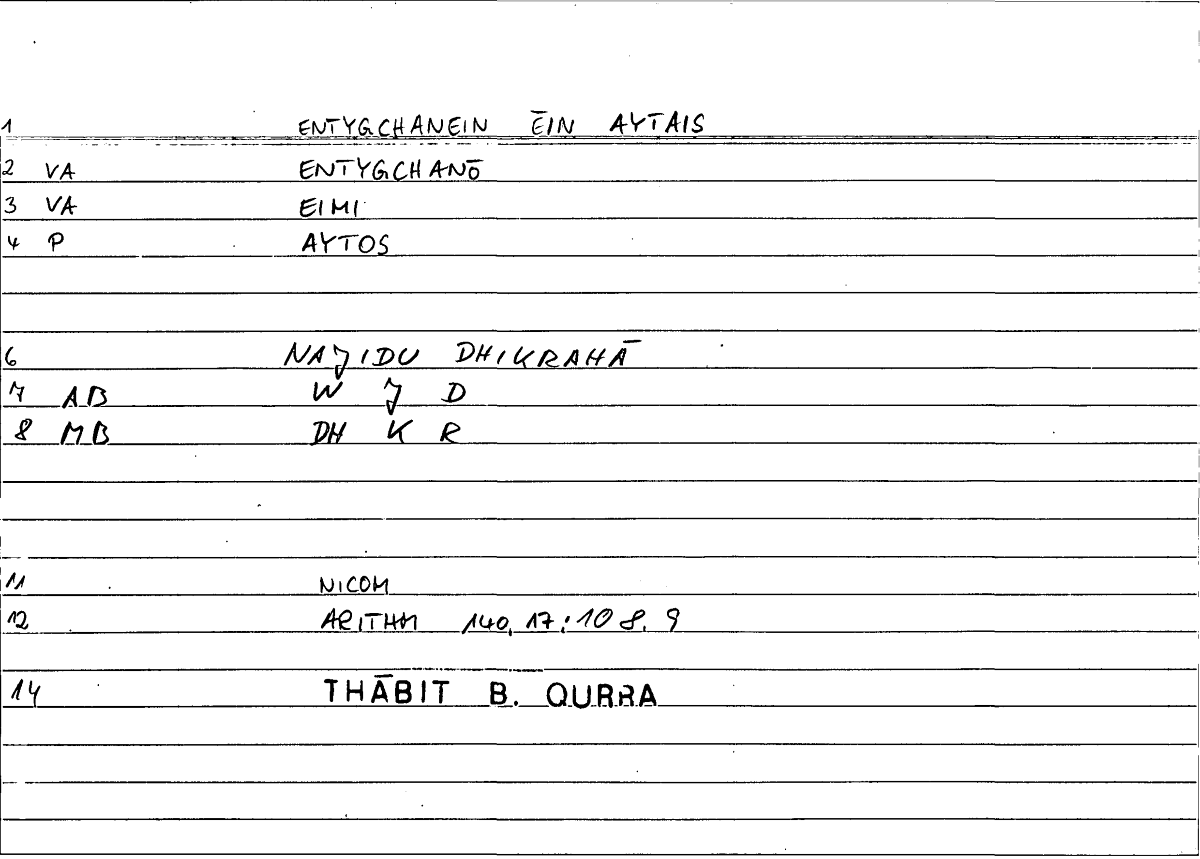 1 ENTYGCHANEIN ĒIN AYTAIS
2 VA ENTYGCHANŌ
3 VA EIMI
4 P AYTOS
6 NAJIDU DHIKRAHĀ
7 AB W J D
8 MB DH K R
11 NICOM
12 ARITHM 140,17:108,9
14 THĀBIT B. QURRA